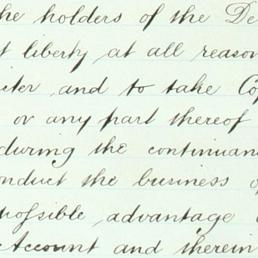 he holders of the De
t liberty at all reason
iter and to take Cop
or any part thereof
during the continuan
onduct the business of
possible advantage
Account and therein